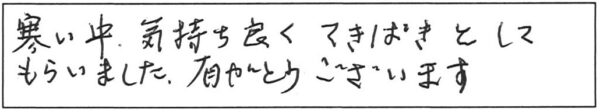 寒い中、気持ち良く てきぱきとして
もらいました、有がとうございます